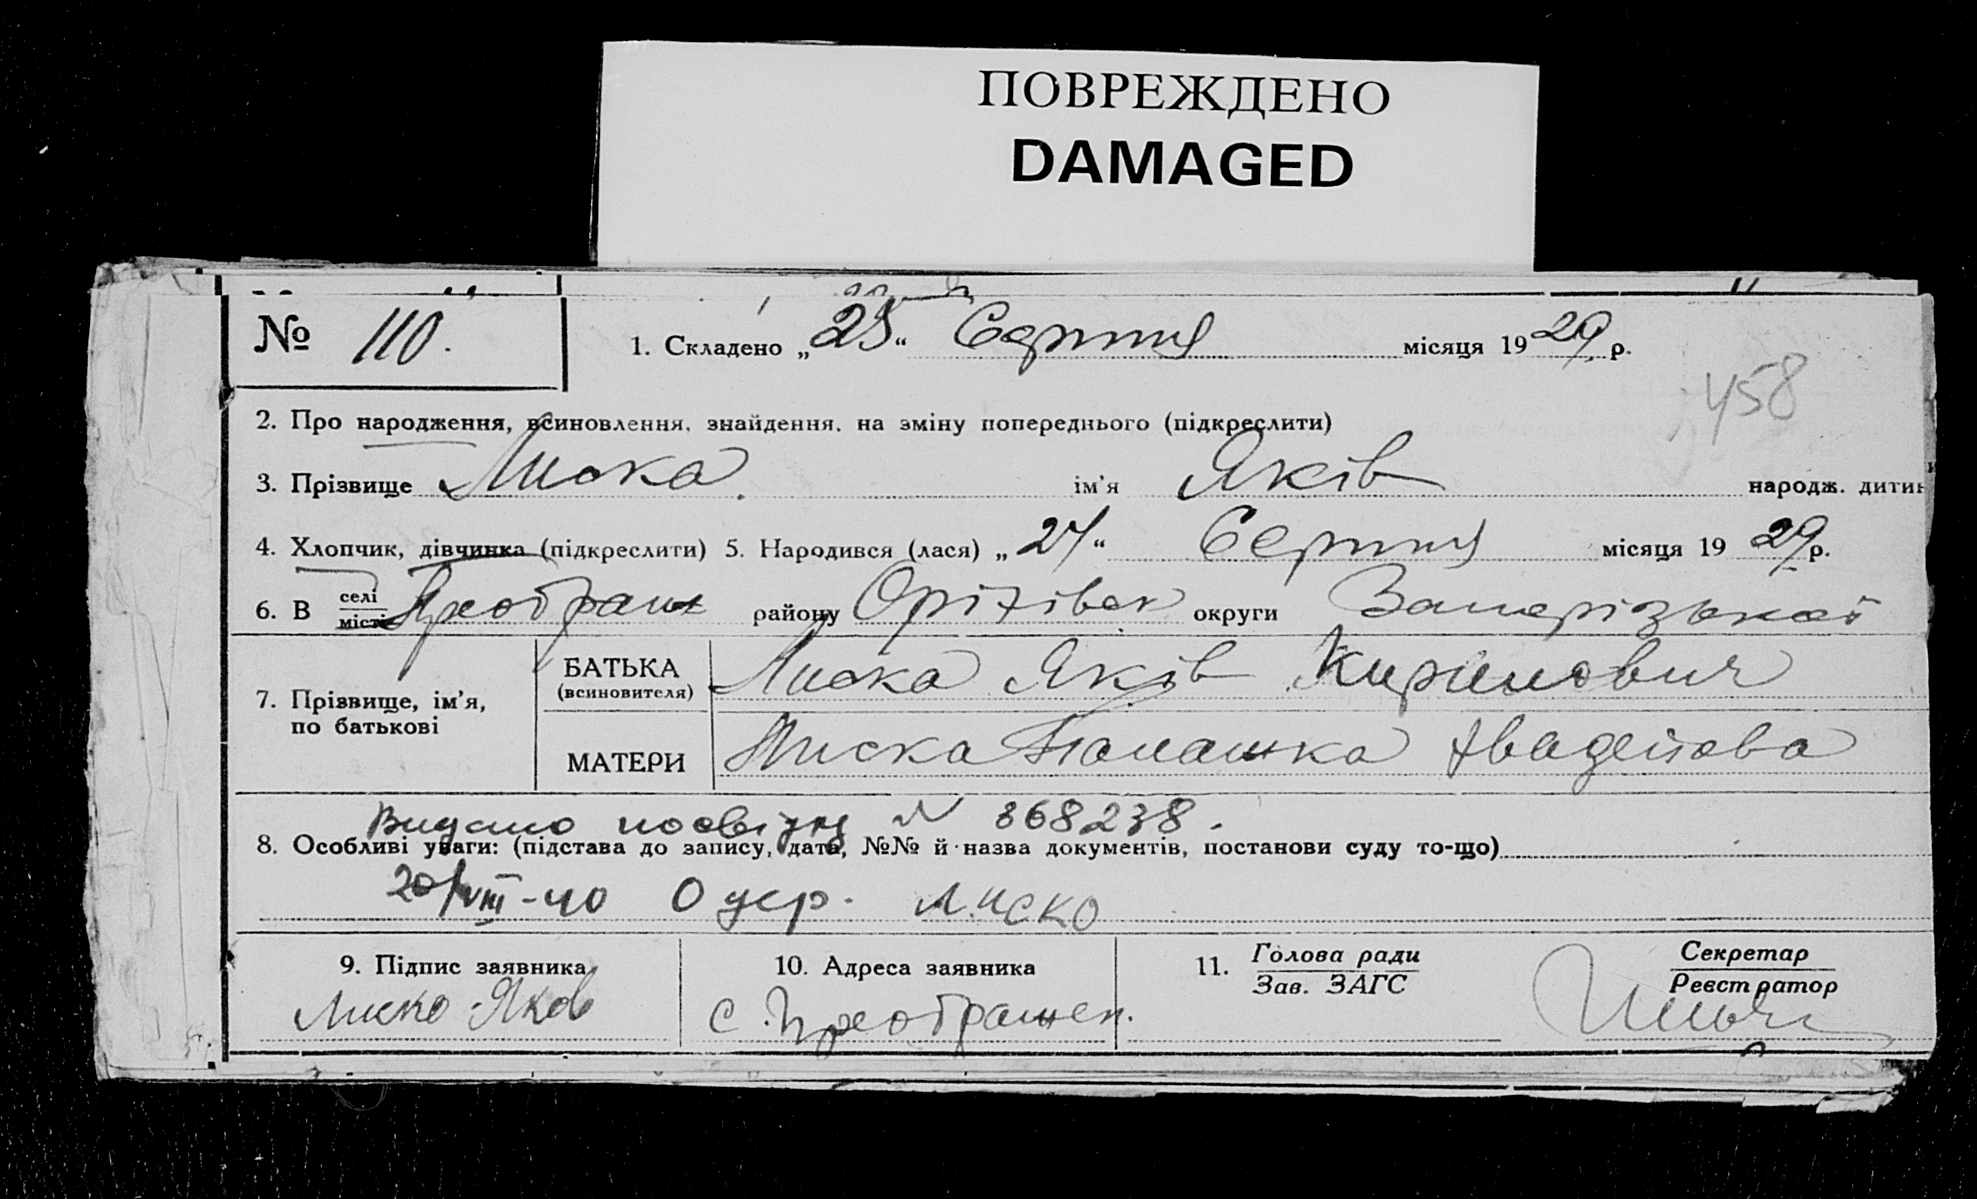 ПОВРЕЖДЕНО
DAMAGED
№ 110.
1. Складено „25“ Серпня місяця 1929 р.
458
2. Про народження, всиновлення, знайдення, на зміну попереднього (підкреслити)
3. Прізвище Лиска ім’я Яків народж. дитин
4. Хлопчик, дівчинка (підкреслити) 5. Народився (лася) „24“ Серпня місяця 1929 р.
6. В селі місті Преображ району Оріхівск округи Запорізької
7. Прізвище, ім’я, по батькові
БАТЬКА (всиновителя) Лиска Яків Кирилович
МАТЕРИ Лиска Палашка Авадеіова
Видано посвідку N 868238.
8. Особливі уваги: (підстава до запису, дата, №№ й назва документів, постанови суду то-що)
20/VIII-40 Одер. Лиско
9. Підпис заявника
Лиско Яков
10. Адреса заявника
с. Преображен.
11. Голова ради
Зав. ЗАГС
Секретар
Реєстратор